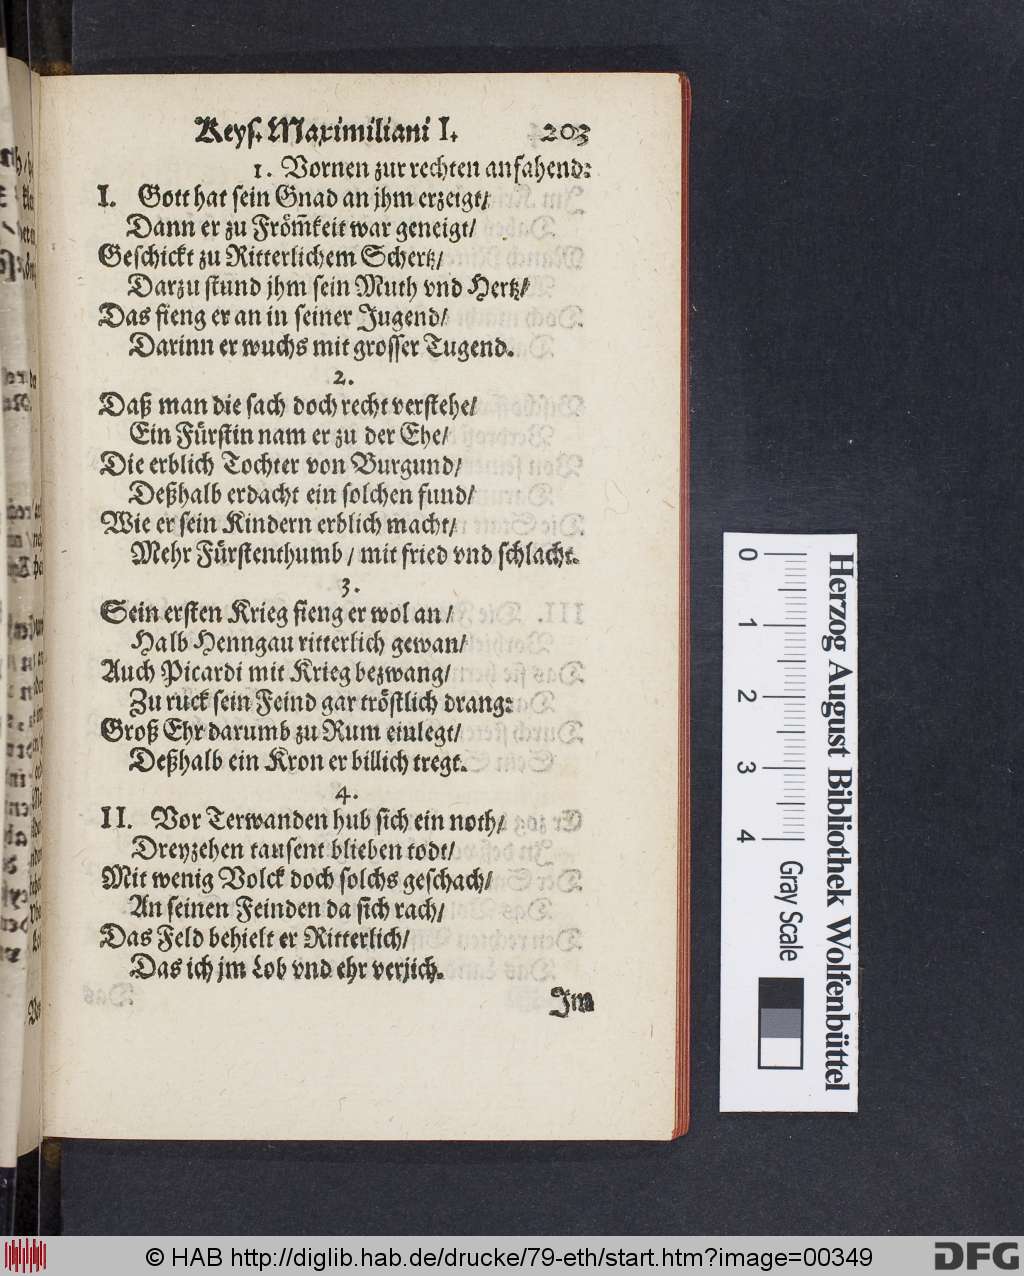 Keys. Maximiliani I. 203
1. Vornen zur rechten anfahend:
I. Gott hat sein Gnad an jhm erzeigt/
Dann er zu Fröm̃keit war geneigt/
Geschickt zu Ritterlichem Schertz/
Darzu stund jhm sein Muth vnd Hertz/
Das fieng er an in seiner Jugend/
Darinn er wuchs mit grosser Tugend.
2.
Daß man die sach doch recht verstehe/
Ein Fürstin nam er zu der Ehe/
Die erblich Tochter von Burgund/
Deßhalb erdacht ein solchen fund/
Wie er sein Kindern erblich macht/
Mehr Fürstenthumb / mit fried vnd schlacht.
3.
Sein ersten Krieg fieng er wol an /
Halb Henngau ritterlich gewan/
Auch Picardi mit Krieg bezwang/
Zu ruck sein Feind gar tröstlich drang:
Groß Ehr darumb zu Rum einlegt/
Deßhalb ein Kron er billich tregt.
4.
II. Vor Terwanden hub sich ein noth/
Dreyzehen tausent blieben todt/
Mit wenig Volck doch solchs geschach/
An seinen Feinden da sich rach/
Das Feld behielt er Ritterlich/
Das ich jm Lob vnd ehr verjich.
Jm
Herzog August Bibliothek Wolfenbüttel
0 1 2 3 4
Gray Scale
© HAB http://diglib.hab.de/drucke/79-eth/start.htm?image=00349
DFG